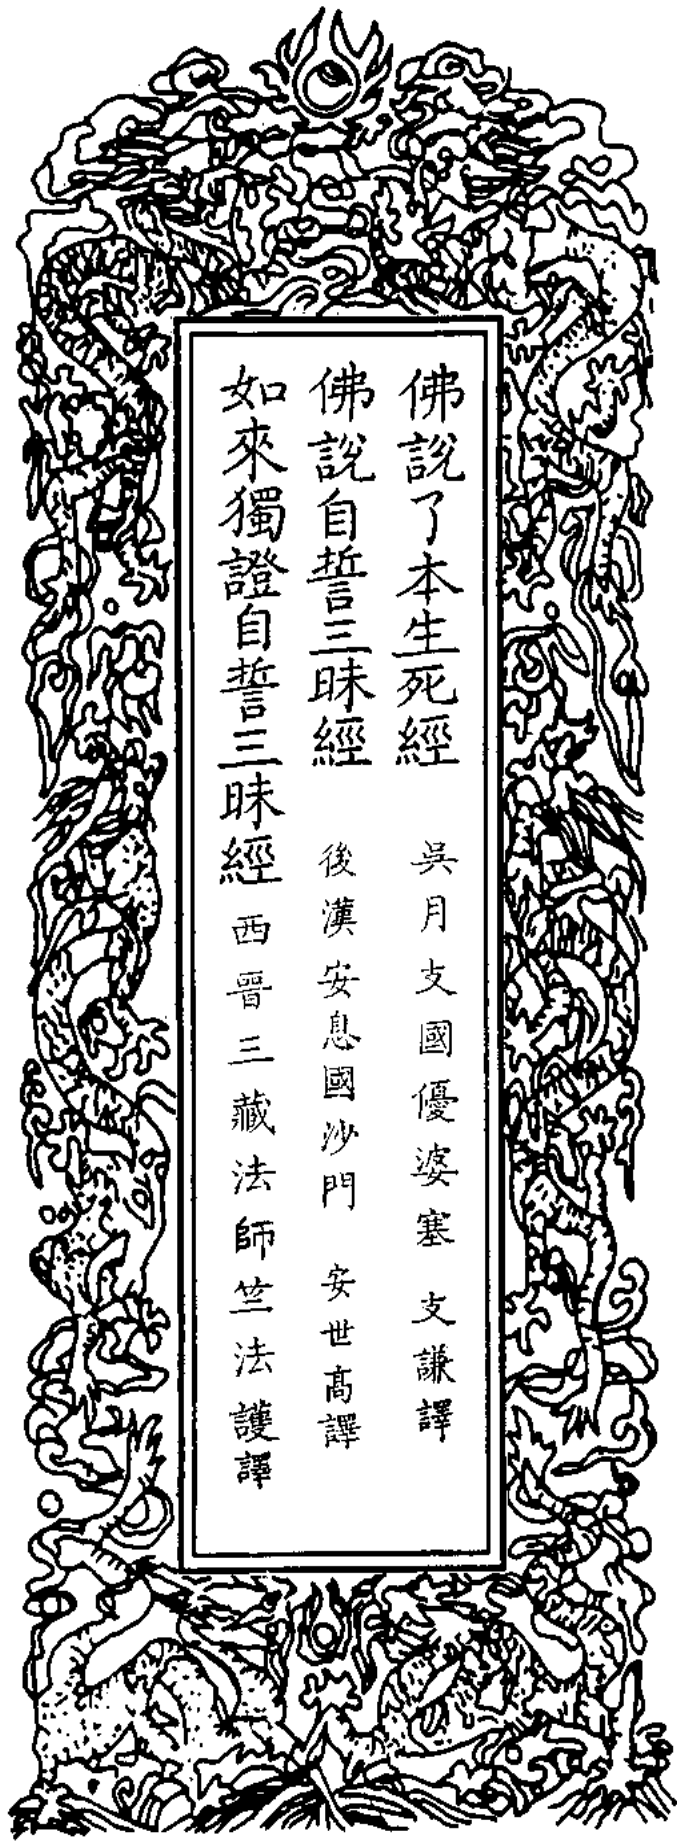 佛說了本生死經 吳月支國優婆塞 支謙譯
佛說自誓三昧經 後漢安息國沙門 安世高譯
如來獨證自誓三昧經 西晉三藏法師竺法護譯